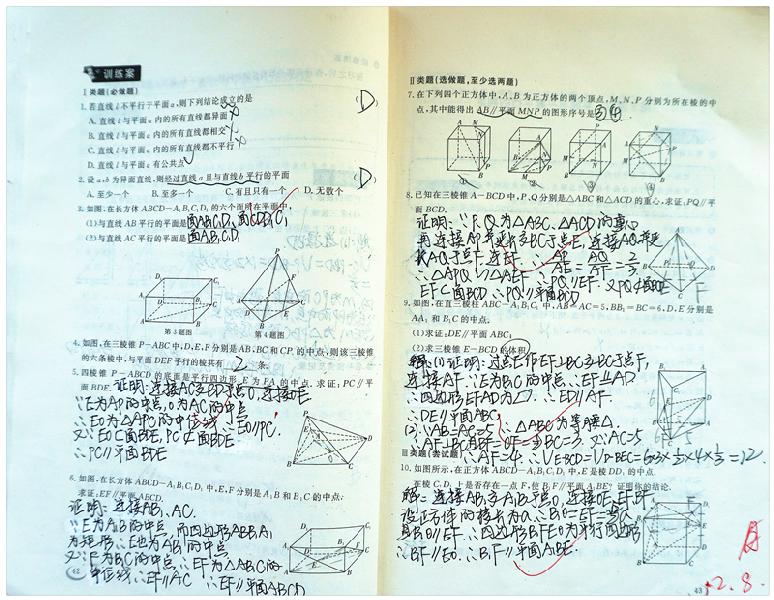 训练案
Ⅰ类题(必做题)
1. 若直线l不平行于平面α,则下列结论成立的是 (D)
A. 直线l与平面α内的所有直线都异面
B. 直线l与平面α内的所有直线都相交
C. 直线l与平面α内的所有直线都不平行
D. 直线l与平面α有公共点
2. 设a,b为异面直线,则经过直线a且与直线b平行的平面 (D)
A. 至少一个 B. 至多一个 C. 有且只有一个 D. 无数个
3. 如图,在长方体ABCD-A₁B₁C₁D₁的六个面所在平面中,
(1)与直线AB平行的平面是面A₁B₁C₁D₁,面CDD₁C₁
(2)与直线AC平行的平面是面A₁B₁C₁D₁
第3题图 第4题图
4. 如图,在三棱锥P-ABC中,D,E,F分别是AB,BC和CP的中点,则该三棱锥
的六条棱中,与平面DEF平行的棱共有 2 条.
5. 四棱锥P-ABCD的底面是平行四边形,E为PA的中点. 求证:PC∥平
面BDE. 证明:连接AC交BD于点O,连接OE.
∵E为AP的中点,O为AC的中点
∴EO为△APC的中位线 ∴EO∥PC.
又∵EO⊂面BDE,PC⊄面BDE
∴PC∥平面BDE
6. 如图,在长方体ABCD-A₁B₁C₁D₁中,E,F分别是A₁B和B₁C的中点:
求证:EF∥平面ABCD.
证明:连接AB₁、AC.
∵E为A₁B的中点,而四边形ABB₁A₁
为矩形 ∴E也为AB₁的中点
又∵F为B₁C的中点 ∴EF为△AB₁C的
中位线 ∴EF∥AC ∴EF∥平面ABCD
42
Ⅱ类题(选做题,至少选两题)
7. 在下列四个正方体中,A,B为正方体的两个顶点,M,N,P分别为所在棱的中
点,其中能得出AB∥平面MNP的图形序号是
① ② ③ ④
8. 已知在三棱锥A-BCD中,P,Q分别是△ABC和△ACD的重心,求证:PQ∥平
面BCD.
证明:∵P、Q为△ABC、△ACD的重心
再连接AP并延长交BC于点E,连接AQ并延
长AQ于点F,连EF. ∴AP/AE=AQ/AF=2/3
∴△APQ∽△AEF ∴PQ∥EF. 又PQ⊄面BCD
EF⊂面BCD ∴PQ∥平面BCD
9. 如图,在直三棱柱ABC-A₁B₁C₁中,AB=AC=5,BB₁=BC=6,D,E分别是
AA₁和B₁C的中点.
(1)求证:DE∥平面ABC;
(2)求三棱锥E-BCD的体积.
解:(1)证明:过点E作EF⊥BC交BC于点F,
连接AF. ∵E为B₁C的中点 ∴EF∥AD
∴四边形EFAD为▱. ∴ED∥AF.
∴DE∥平面ABC
(2)∵AB=AC=5 ∴△ABC为等腰△.
∴AF⊥BC且BF=CF=½BC=3. 又AC=5
∴AF=4. ∴V_E-BCD=V_D-BEC=6×3×½×4×⅓=12.
Ⅲ类题(尝试题)
10. 如图所示,在正方体ABCD-A₁B₁C₁D₁中,E是棱DD₁的中点.
在棱C₁D₁上是否存在一点F,使B₁F∥平面A₁BE?证明你的结论.
解:连接AB₁交A₁B于点O,连接OE、EF、BF.
∴B₁F∥EO. ∴B₁F∥平面A₁BE.
43
A
12.8.